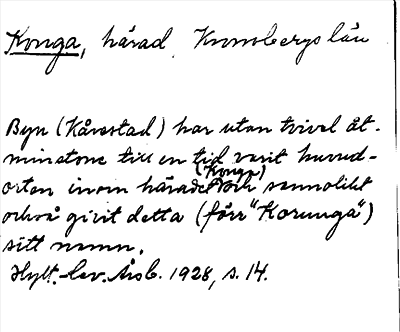 Konga, härad, Kronobergs län
Byn (Kårestad) har utan tvivel åt-
minstone till en tid varit huvud-
orten inom häradet (Konga) och sannolikt
också givit detta (förr "Korunga")
sitt namn.
Hylt.-Cav. Årsb. 1928, s. 14.